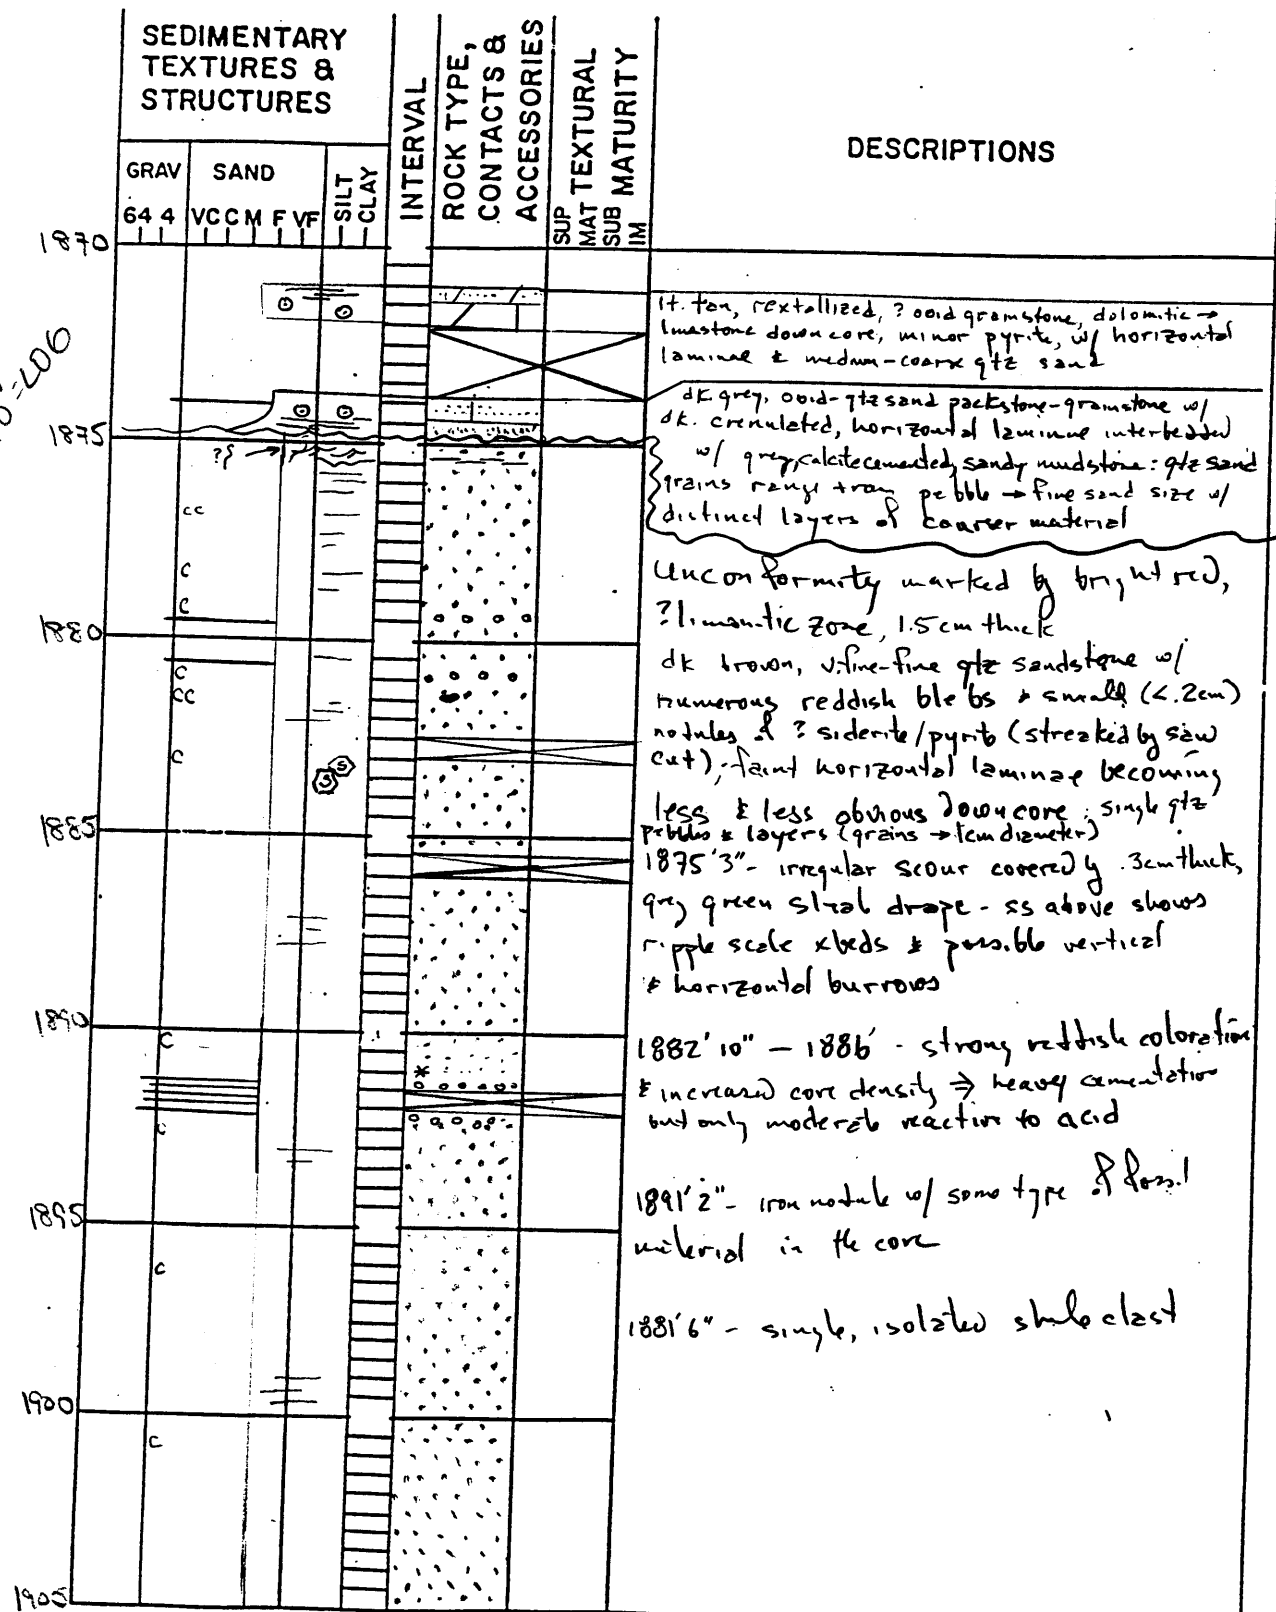 SEDIMENTARY
TEXTURES &
STRUCTURES
INTERVAL
ROCK TYPE,
CONTACTS &
ACCESSORIES
TEXTURAL
MATURITY
SUP
MAT
SUB
IM
DESCRIPTIONS
GRAV
SAND
SILT
CLAY
64 4 VC C M F VF
1870
lt. tan, rextallized, ? ooid grainstone, dolomitic →
limestone down core, minor pyrite, w/ horizontal
laminae & medium-coarse qtz sand
dk grey, ooid-qtz sand packstone-grainstone w/
dk. crenulated, horizontal laminae interbedded
w/ grey, calcite cemented, sandy mudstone: qtz sand
grains range from pebble → fine sand size w/
distinct layers of coarser material
1875
?
cc
c
c
Unconformity marked by bright red,
?limonitic zone, 1.5cm thick
1880
dk brown, v.fine-fine qtz sandstone w/
numerous reddish blebs & small (<.2cm)
nodules of ? siderite/pyrite (streaked by saw
cut), faint horizontal laminae becoming
less & less obvious down core; single qtz
pebbles & layers (grains → 1cm diameter)
c
cc
c
S
S
1885
1875'3" - irregular scour covered by .3cm thick,
grey green shale drape - ss above shows
ripple scale xbeds & possible vertical
& horizontal burrows
1890
c
c
1882'10" - 1886' - strong reddish coloration
& increased core density ⇒ heavy cementation
but only moderate reaction to acid
1891'2" - iron nodule w/ some type of fossil
material in the core
1895
c
1881'6" - single, isolated shale clast
1900
c
1905